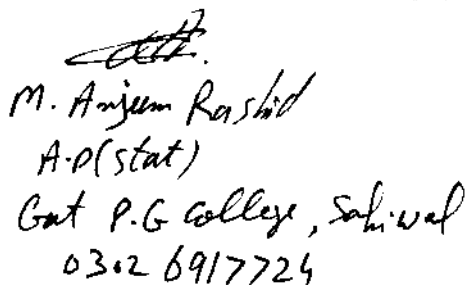 M. Anjum Rashid
A.P(Stat)
Govt P.G College, Sahiwal
0302 6917724